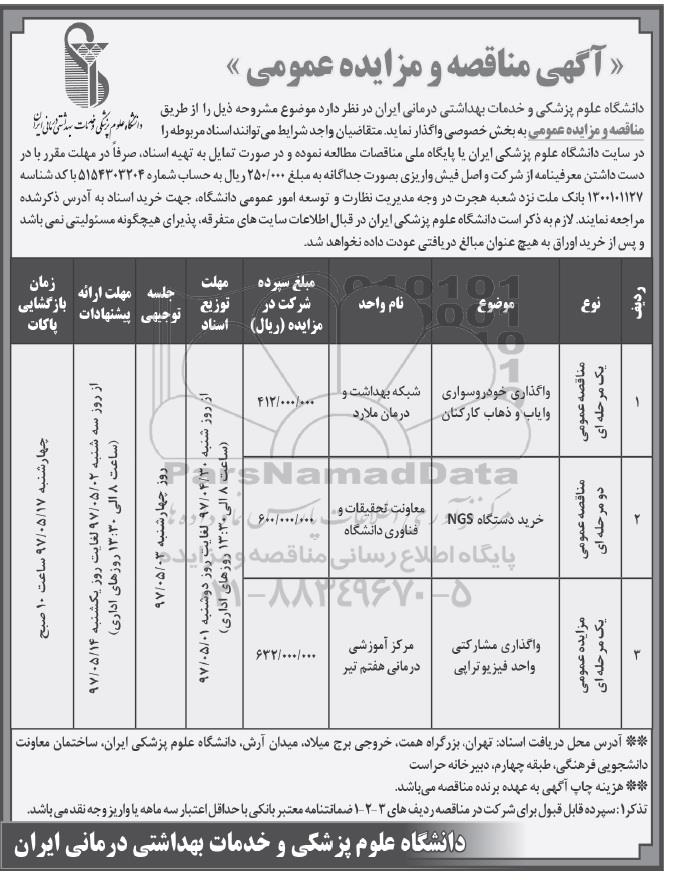 « آگهی مناقصه و مزایده عمومی »
دانشگاه علوم پزشکی و خدمات بهداشتی درمانی ایران
دانشگاه علوم پزشکی و خدمات بهداشتی درمانی ایران در نظر دارد موضوع مشروحه ذیل را از طریق
مناقصه و مزایده عمومی به بخش خصوصی واگذار نماید. متقاضیان واجد شرایط می‌توانند اسناد مربوطه را
در سایت دانشگاه علوم پزشکی ایران یا پایگاه ملی مناقصات مطالعه نموده و در صورت تمایل به تهیه اسناد، صرفاً در مهلت مقرر با در
دست داشتن معرفینامه از شرکت و اصل فیش واریزی بصورت جداگانه به مبلغ ۲۵۰/۰۰۰ ریال به حساب شماره ۵۱۵۴۳۰۳۲۰۴ با کد شناسه
۱۳۰۰۱۰۱۱۲۷ بانک ملت نزد شعبه هجرت در وجه مدیریت نظارت و توسعه امور عمومی دانشگاه، جهت خرید اسناد به آدرس ذکرشده
مراجعه نمایند. لازم به ذکر است دانشگاه علوم پزشکی ایران در قبال اطلاعات سایت های متفرقه، پذیرای هیچگونه مسئولیتی نمی باشد
و پس از خرید اوراق به هیچ عنوان مبالغ دریافتی عودت داده نخواهد شد.
ردیف
نوع
موضوع
نام واحد
مبلغ سپرده
شرکت در
مزایده (ریال)
مهلت
توزیع
اسناد
جلسه
توجیهی
مهلت ارائه
پیشنهادات
زمان
بازگشایی
پاکات
۱
مناقصه عمومی
یک مرحله ای
واگذاری خودروسواری
وایاب و ذهاب کارکنان
شبکه بهداشت و
درمان ملارد
۴۱۲/۰۰۰/۰۰۰
از روز شنبه ۹۷/۰۴/۳۰ لغایت روز دوشنبه ۹۷/۰۵/۰۱
(ساعت ۸ الی ۱۳:۳۰ روزهای اداری)
روز چهارشنبه ۹۷/۰۵/۰۳
از روز سه شنبه ۹۷/۰۵/۰۲ لغایت روز یکشنبه ۹۷/۰۵/۱۴
(ساعت ۸ الی ۱۳:۳۰ روزهای اداری)
چهارشنبه ۹۷/۰۵/۱۷ ساعت ۱۰ صبح
۲
مناقصه عمومی
دو مرحله ای
خرید دستگاه NGS
معاونت تحقیقات و
فناوری دانشگاه
۶۰۰/۰۰۰/۰۰۰
۳
مزایده عمومی
یک مرحله ای
واگذاری مشارکتی
واحد فیزیوتراپی
مرکز آموزشی
درمانی هفتم تیر
۶۳۲/۰۰۰/۰۰۰
ParsNamadData
پایگاه اطلاع رسانی مناقصه و مزایده
۰۲۱-۸۸۳۴۹۶۷۰-۵
** آدرس محل دریافت اسناد: تهران، بزرگراه همت، خروجی برج میلاد، میدان آرش، دانشگاه علوم پزشکی ایران، ساختمان معاونت
دانشجویی فرهنگی، طبقه چهارم، دبیرخانه حراست
** هزینه چاپ آگهی به عهده برنده مناقصه می‌باشد.
تذکر۱: سپرده قابل قبول برای شرکت در مناقصه ردیف های ۳-۲-۱ ضمانتنامه معتبر بانکی با حداقل اعتبار سه ماهه یا واریز وجه نقد می باشد.
دانشگاه علوم پزشکی و خدمات بهداشتی درمانی ایران